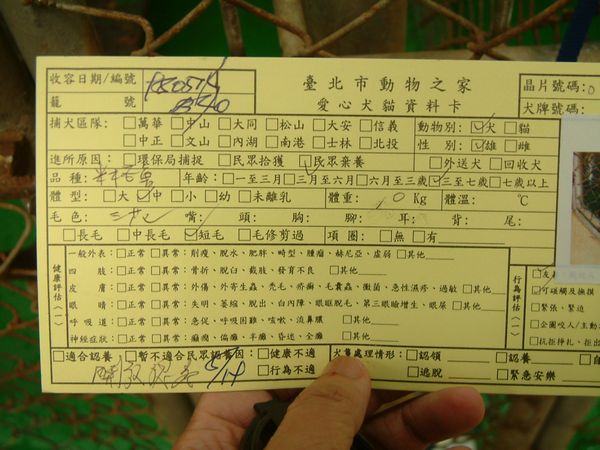 收容日期/編號 臺北市動物之家 晶片號碼:0
籠 號 愛心犬貓資料卡 犬牌號碼:
捕犬區隊: □萬華 □中山 □大同 □松山 □大安 □信義 動物別: ☑犬 □貓
□中正 □文山 □內湖 □南港 □士林 □北投 性 別: ☑雄 □雌
進所原因: □環保局捕捉 □民眾拾獲 ☑民眾棄養 □外送犬 □回收犬
品 種: 年齡: □一至三月 □三月至六月 □六月至三歲 ☑三至七歲 □七歲以上
體 型: □大 ☑中 □小 □幼 □未離乳 體重: Kg 體溫: ℃
毛 色: 嘴: 頭: 胸: 腳: 耳: 背: 尾:
□長毛 □中長毛 ☑短毛 □毛修剪過 項 圈: □無 □有
健康評估(一) 一般外表: □正常 □異常: 削瘦、脫水、肥胖、畸型、腫瘤、赫尼亞、虛弱 □其他
四 肢: □正常 □異常: 骨折、脫臼、截肢、發育不良 □其他
皮 膚: □正常 □異常: 外傷、外寄生蟲、禿毛、疥癬、毛囊蟲、黴菌、急性濕疹、過敏 □其他
眼 睛: □正常 □異常: 失明、萎縮、脫出、白內障、眼眶脫毛、第三眼瞼增生、眼屎 □其他
呼 吸 道: □正常 □異常: 急促、呼吸困難、咳嗽、流鼻膿 □其他
神經症狀: □正常 □異常: 癲癇、偏癱、半癱、昏迷、全癱 □其他
行為評估(一)
□可碰觸及撫摸
□緊張、緊迫
□企圖咬人/主動
□抗拒掙扎、拒出
□適合認養 □暫不適合民眾認養因: □健康不適 處理情形: □認領 □認養
5/14 □行為不適 □逃脫 □緊急安樂